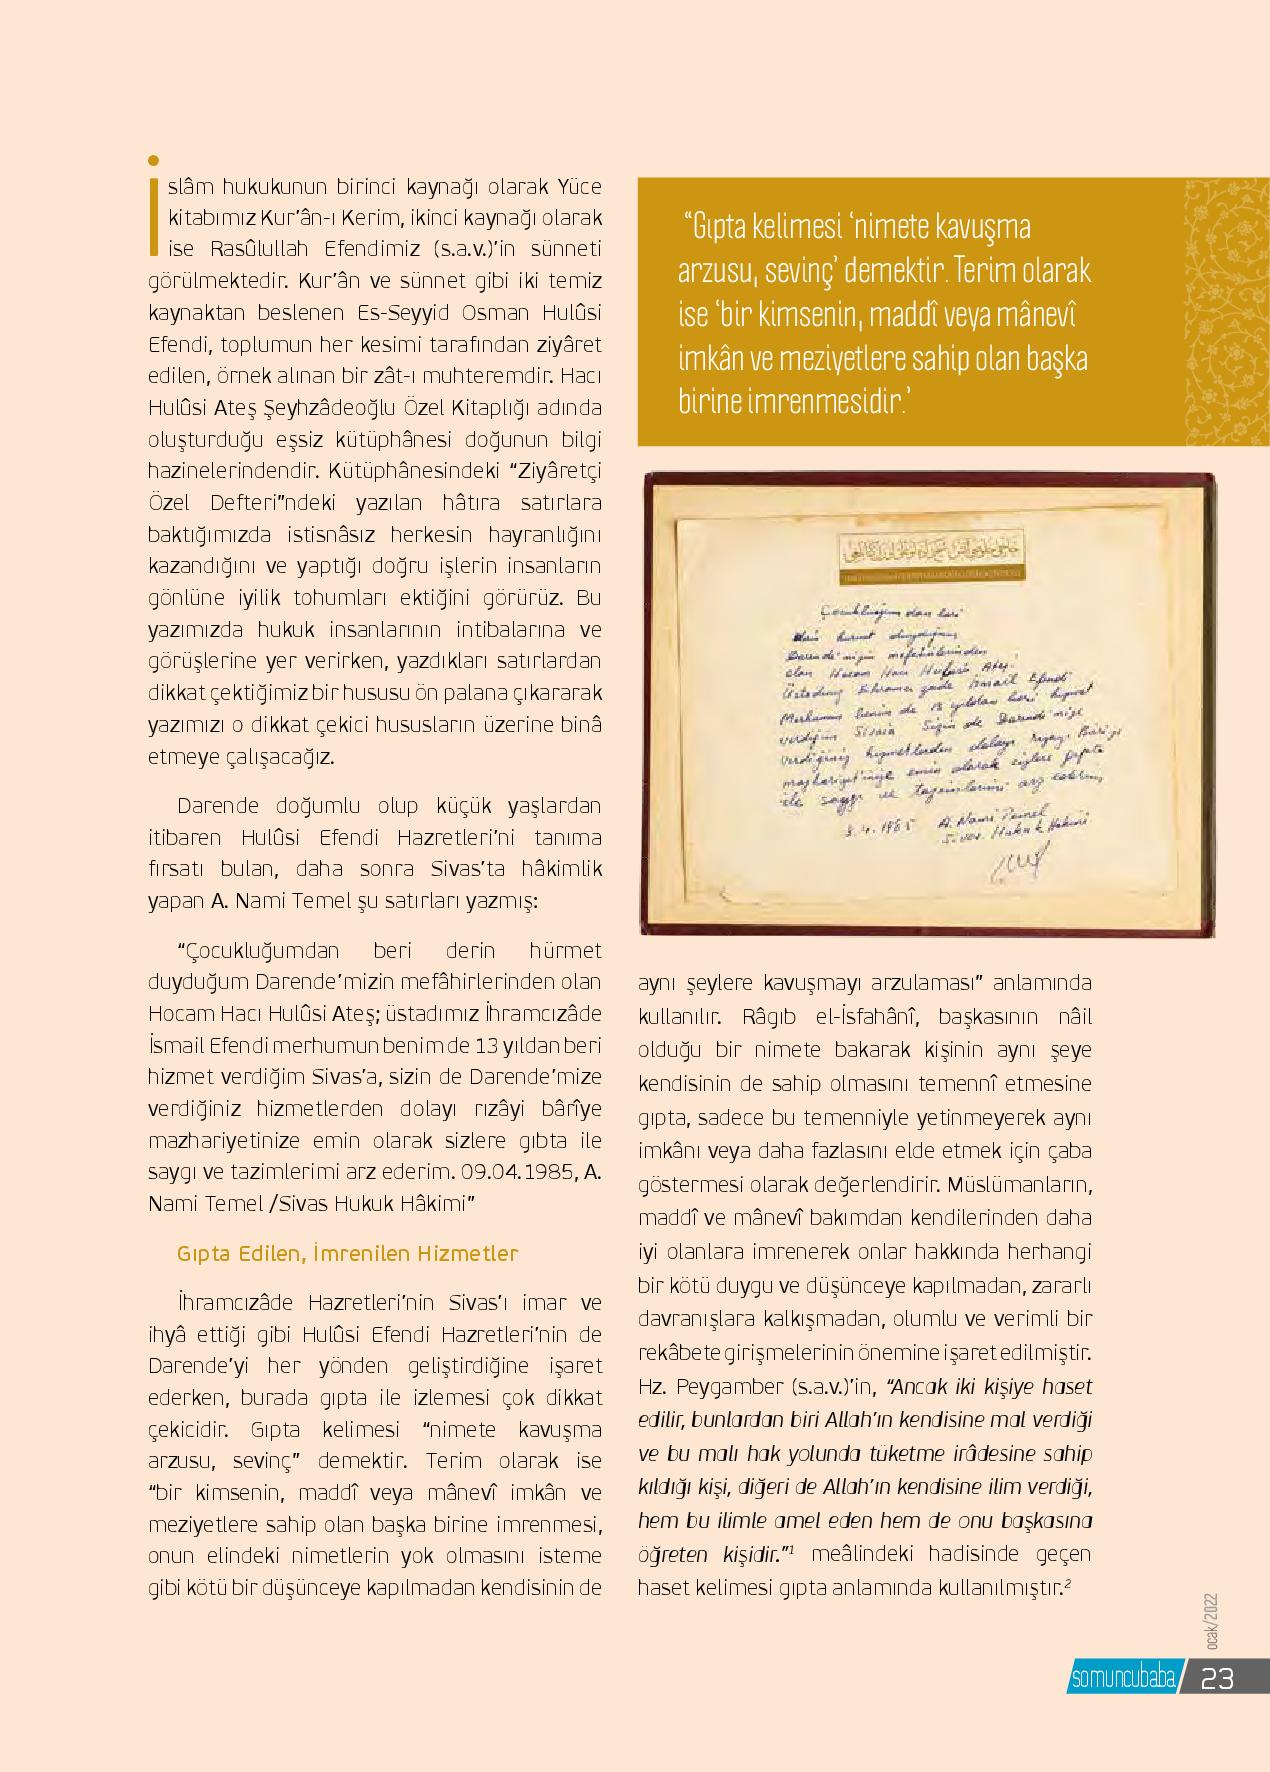 İslâm hukukunun birinci kaynağı olarak Yüce
kitabımız Kur’ân-ı Kerim, ikinci kaynağı olarak
ise Rasûlullah Efendimiz (s.a.v.)’in sünneti
görülmektedir. Kur’ân ve sünnet gibi iki temiz
kaynaktan beslenen Es-Seyyid Osman Hulûsi
Efendi, toplumun her kesimi tarafından ziyâret
edilen, örnek alınan bir zât-ı muhteremdir. Hacı
Hulûsi Ateş Şeyhzâdeoğlu Özel Kitaplığı adında
oluşturduğu eşsiz kütüphânesi doğunun bilgi
hazinelerindendir. Kütüphânesindeki “Ziyâretçi
Özel Defteri”ndeki yazılan hâtıra satırlara
baktığımızda istisnâsız herkesin hayranlığını
kazandığını ve yaptığı doğru işlerin insanların
gönlüne iyilik tohumları ektiğini görürüz. Bu
yazımızda hukuk insanlarının intibalarına ve
görüşlerine yer verirken, yazdıkları satırlardan
dikkat çektiğimiz bir hususu ön palana çıkararak
yazımızı o dikkat çekici hususların üzerine binâ
etmeye çalışacağız.
Darende doğumlu olup küçük yaşlardan
itibaren Hulûsi Efendi Hazretleri’ni tanıma
fırsatı bulan, daha sonra Sivas’ta hâkimlik
yapan A. Nami Temel şu satırları yazmış:
“Çocukluğumdan beri derin hürmet
duyduğum Darende’mizin mefâhirlerinden olan
Hocam Hacı Hulûsi Ateş; üstadımız İhramcızâde
İsmail Efendi merhumun benim de 13 yıldan beri
hizmet verdiğim Sivas’a, sizin de Darende’mize
verdiğiniz hizmetlerden dolayı rızâyi bârîye
mazhariyetinize emin olarak sizlere gıbta ile
saygı ve tazimlerimi arz ederim. 09.04.1985, A.
Nami Temel /Sivas Hukuk Hâkimi”
Gıpta Edilen, İmrenilen Hizmetler
İhramcızâde Hazretleri’nin Sivas’ı imar ve
ihyâ ettiği gibi Hulûsi Efendi Hazretleri’nin de
Darende’yi her yönden geliştirdiğine işaret
ederken, burada gıpta ile izlemesi çok dikkat
çekicidir. Gıpta kelimesi “nimete kavuşma
arzusu, sevinç” demektir. Terim olarak ise
“bir kimsenin, maddî veya mânevî imkân ve
meziyetlere sahip olan başka birine imrenmesi,
onun elindeki nimetlerin yok olmasını isteme
gibi kötü bir düşünceye kapılmadan kendisinin de
“Gıpta kelimesi ‘nimete kavuşma
arzusu, sevinç’ demektir. Terim olarak
ise ‘bir kimsenin, maddî veya mânevî
imkân ve meziyetlere sahip olan başka
birine imrenmesidir.’
Çocukluğumdan beri
derin hürmet duyduğum
Darende'mizin mefahirlerinden
olan Hocam Hacı Hulûsi Ateş.
Üstadımız İhramcızade İsmail Efendi
Merhumun benim de 13 yıldan beri hizmet
verdiğim Sivasa Sizin de Darende'mize
verdiğiniz hizmetlerden dolayı rızayı Bariye
mazhariyetinize emin olarak sizlere gıpta
ile saygı ve tazimlerimi arz ederim
9.4.1985 A. Nami Temel
Sivas Hukuk Hakimi
aynı şeylere kavuşmayı arzulaması” anlamında
kullanılır. Râgıb el-İsfahânî, başkasının nâil
olduğu bir nimete bakarak kişinin aynı şeye
kendisinin de sahip olmasını temennî etmesine
gıpta, sadece bu temenniyle yetinmeyerek aynı
imkânı veya daha fazlasını elde etmek için çaba
göstermesi olarak değerlendirir. Müslümanların,
maddî ve mânevî bakımdan kendilerinden daha
iyi olanlara imrenerek onlar hakkında herhangi
bir kötü duygu ve düşünceye kapılmadan, zararlı
davranışlara kalkışmadan, olumlu ve verimli bir
rekâbete girişmelerinin önemine işaret edilmiştir.
Hz. Peygamber (s.a.v.)’in, “Ancak iki kişiye haset
edilir, bunlardan biri Allah’ın kendisine mal verdiği
ve bu malı hak yolunda tüketme irâdesine sahip
kıldığı kişi, diğeri de Allah’ın kendisine ilim verdiği,
hem bu ilimle amel eden hem de onu başkasına
öğreten kişidir.”1 meâlindeki hadisinde geçen
haset kelimesi gıpta anlamında kullanılmıştır.2
ocak/2022
somuncubaba 23